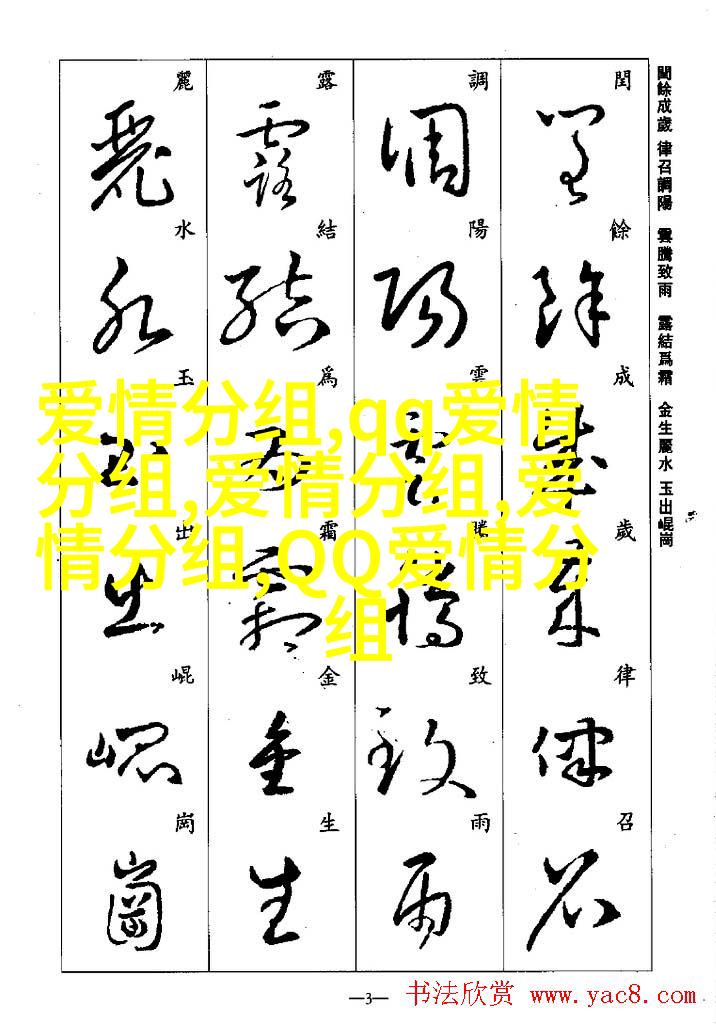 閏餘成歲 律召調陽 雲騰致雨 露結爲霜 金生麗水 玉出崐崗
閏
餘
成
歲
律
召
調
陽
雲
騰
致
雨
露
結
爲
霜
金
生
麗
水
玉
出
崐
崗
爱情分组,qq爱情
分组,爱情分组,爱
情分组,QQ爱情分
组
—3—
书法欣赏 www.yac8.com